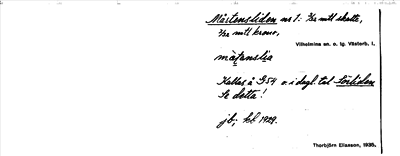 Mårtensliden nr 1: 5/32 mtl skatte,
3/32 mtl krono,
Vilhelmina sn. o. lg. Västerb. l.
mɑ̀ʈɑnslia
Kallas å G54 o. i dagl. tal Lövliden
Se detta!
jb; kb 1929.
Thorbjörn Eliasson, 1935.